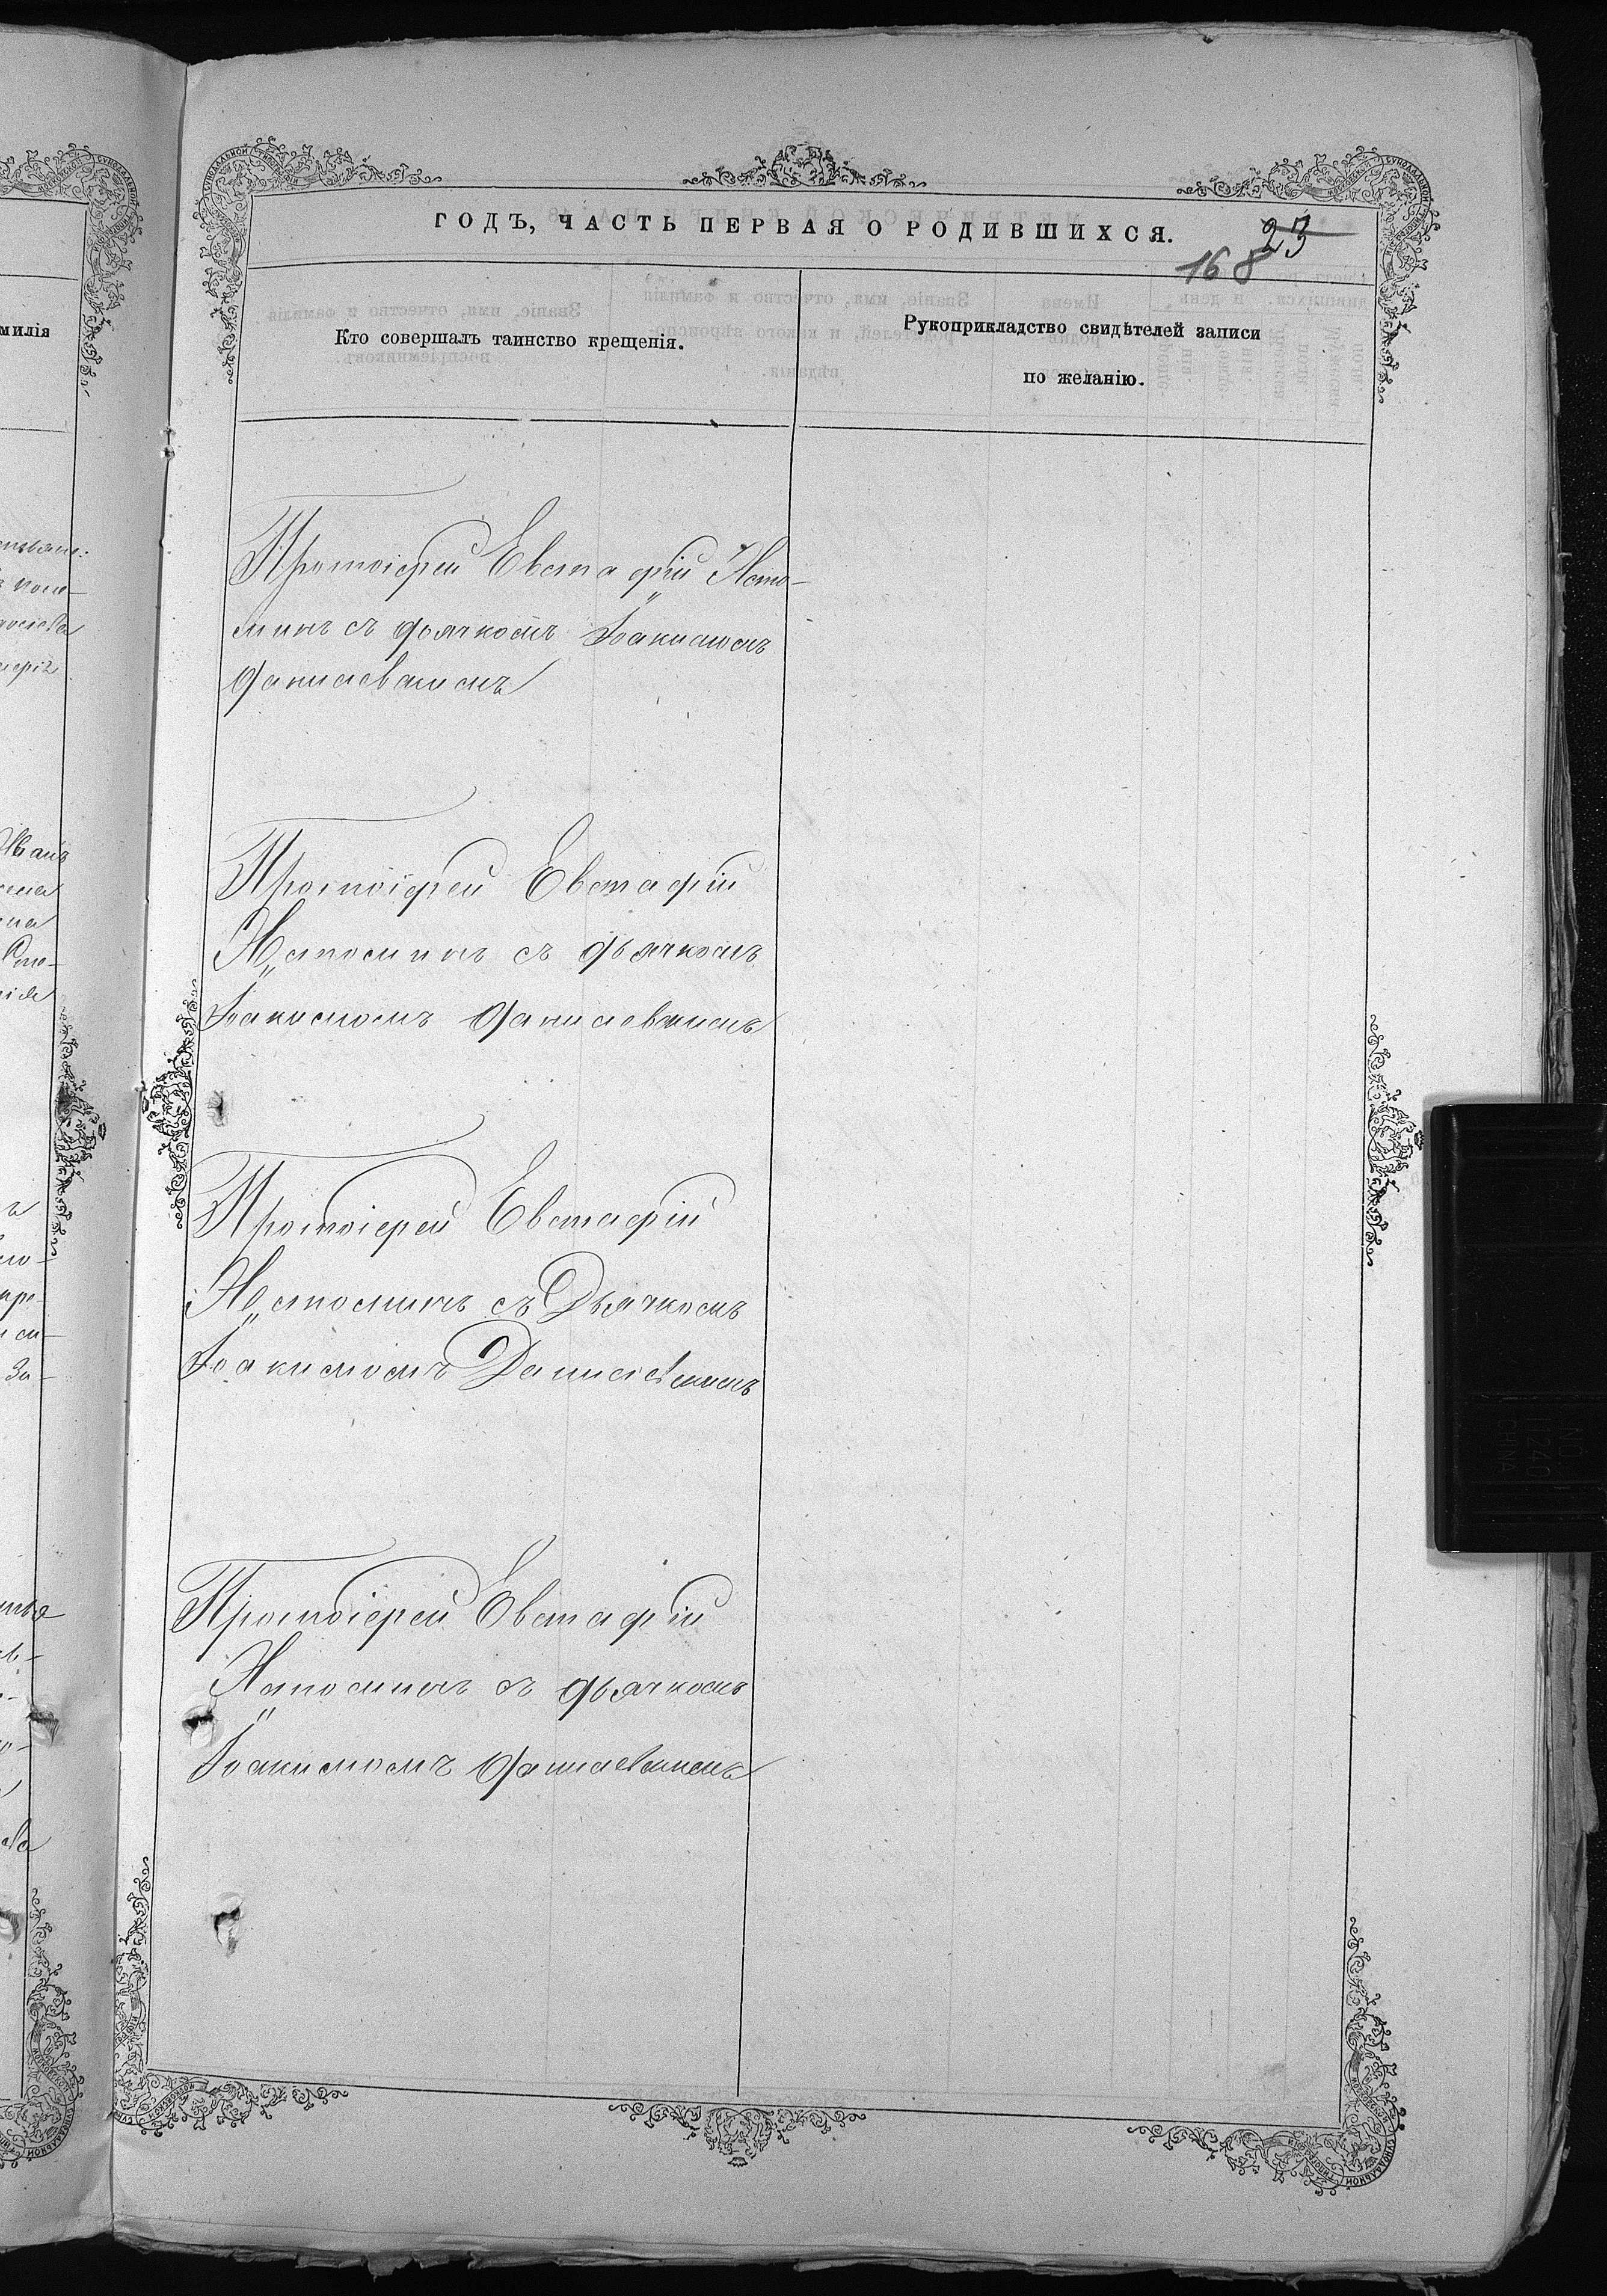 ГОДЪ, ЧАСТЬ ПЕРВАЯ О РОДИВШИХСЯ.
23
168
милія
Кто совершалъ таинство крещенія.
Рукоприкладство свидѣтелей записи
по желанію.
Протоіерей Евстафій Исто-
минъ съ дьячкомъ Іоакимомъ
Данилевскимъ
Протоіерей Евстафій
Истоминъ съ дьячкомъ
Іоакимомъ Данилевскимъ
Протоіерей Евстафій
Истоминъ съ Дьячкомъ
Іоакимомъ Данилевскимъ
Протоіерей Евстафій
Истоминъ съ дьячкомъ
Іоакимомъ Данилевскимъ